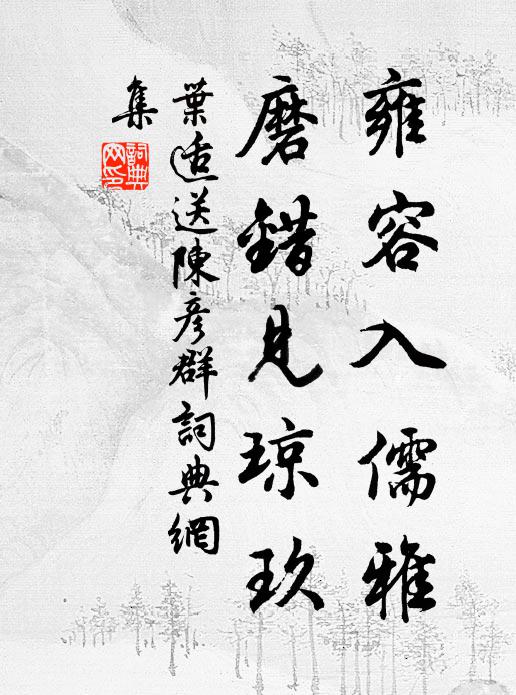 雍容入儒雅
磨錯見琼玖
葉适送陳彥群詞典網
集
詞典網印